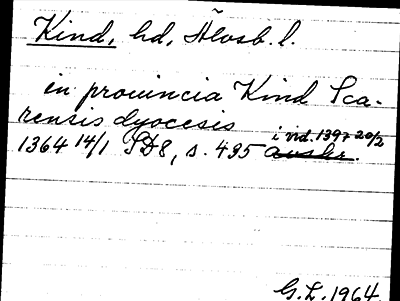 Kind, hd, Älvsb. l.
in prouincia Kind Sca-
rensis dyocesis
i vid. 1397 20/2
1364 14/1 SD8, s. 435 avskr.
G.L. 1964.